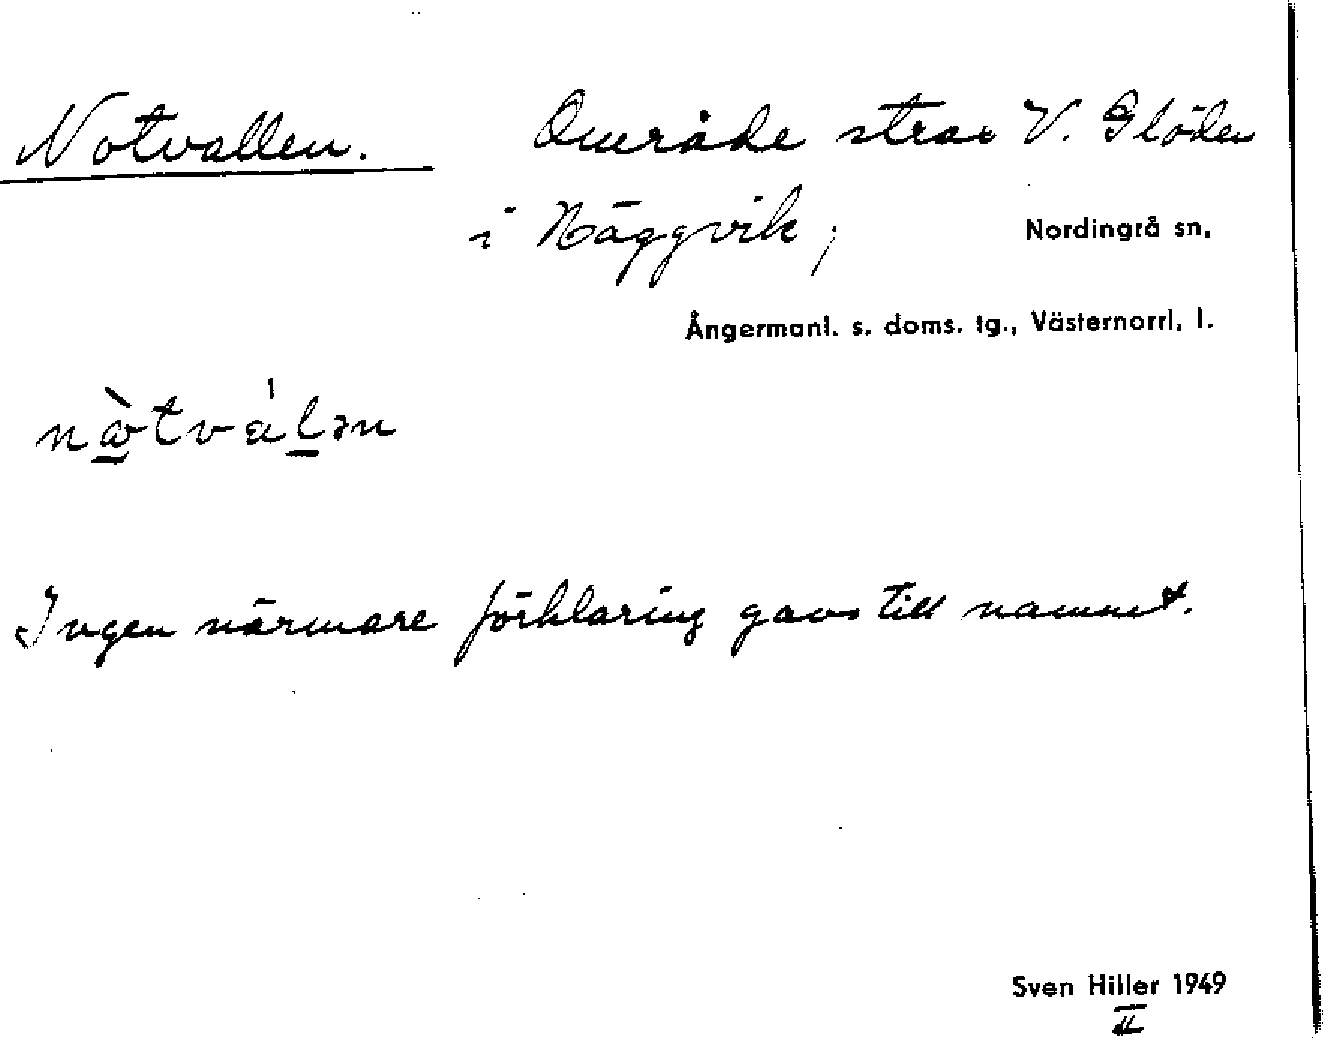 Notvallen. Område strax V. Glöden
i Häggvik, Nordingrå sn.
Ångermanl. s. doms. tg., Västernorrl. l.
Ingen närmare förklaring gavs till namnet.
Sven Hiller 1949
II